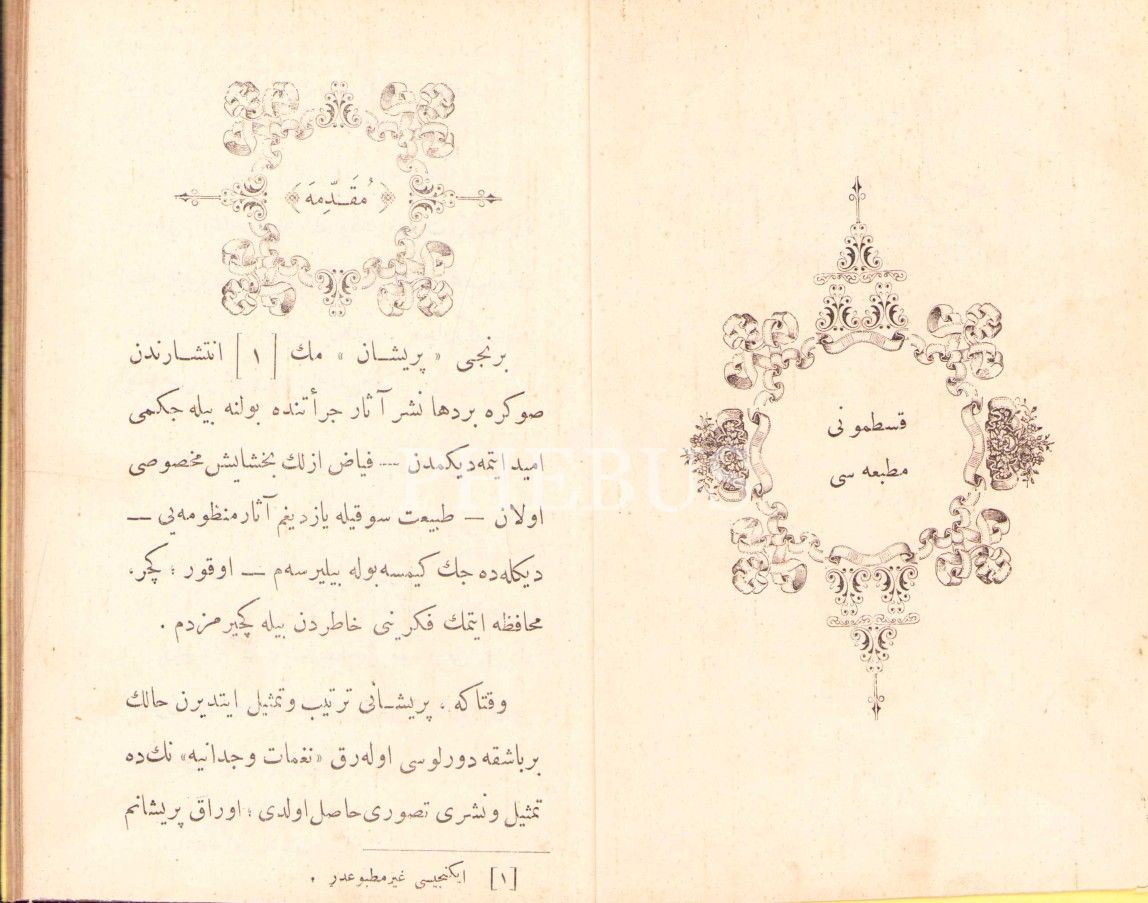 قسطمونی
مطبعه سی
مُقَدِّمَه
برنجی « پریشان » مك [ ١ ] انتشارندن
صوکره بردها نشر آثار جرأتنده بولنه بیله جکمی
امید ایتمه دیکمدن — فیاض ازلك بخشایش مخصوصی
اولان — طبیعت سوقیله یازدیغم آثار منظومه یی —
دیکله ده جك کیمسه بوله بیلیرسه م — اوقور ؛ کچر،
محافظه ایتمك فکرینی خاطردن بیله کچیرمزدم .
وقتاکه ، پریشانی ترتیب و تمثیل ایتدیرن حالك
برباشقه دورلوسی اوله رق «نغمات وجدانیه» نك ده
تمثیل و نشری تصوری حاصل اولدی ؛ اوراق پریشانم
[١] ایکنجیسی غیر مطبوعدر .
PHEBUS